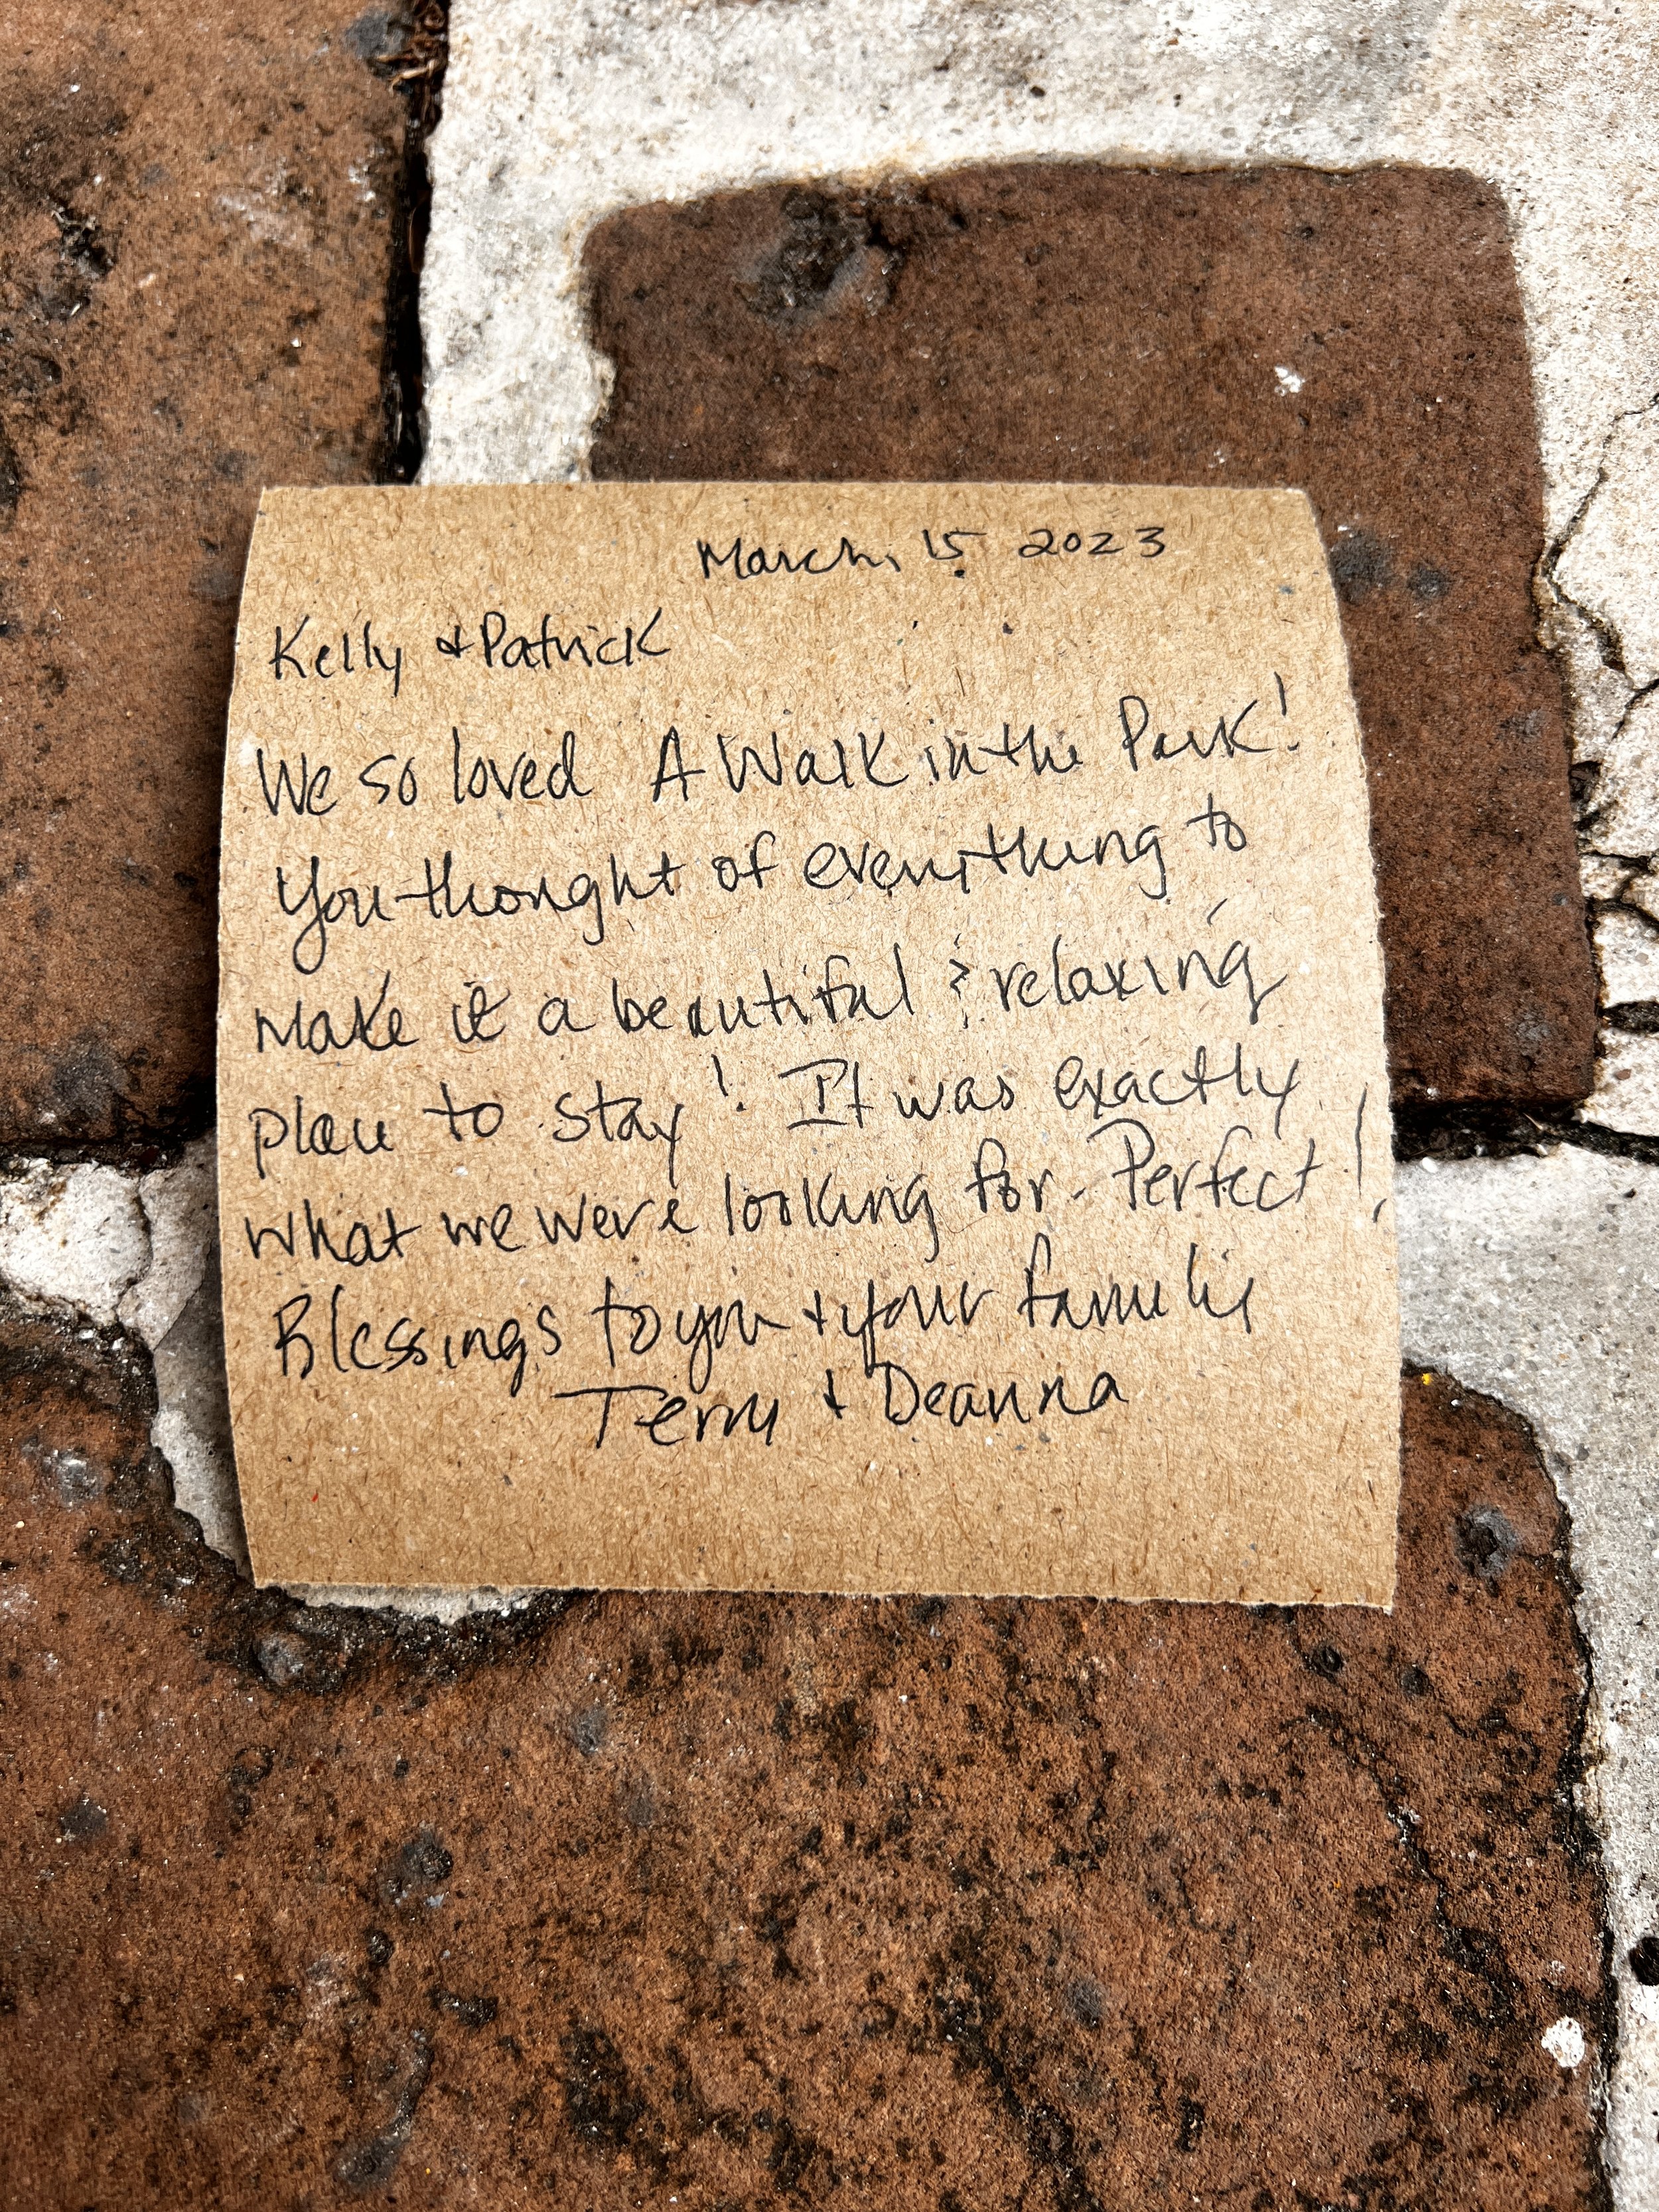 March, 15 2023
Kelly + Patrick
We so loved A Walk in the Park!
You thought of everything to
make it a beautiful & relaxing
place to stay! It was exactly
what we were looking for. Perfect!
Blessings to you + your family
Terry + Deanna